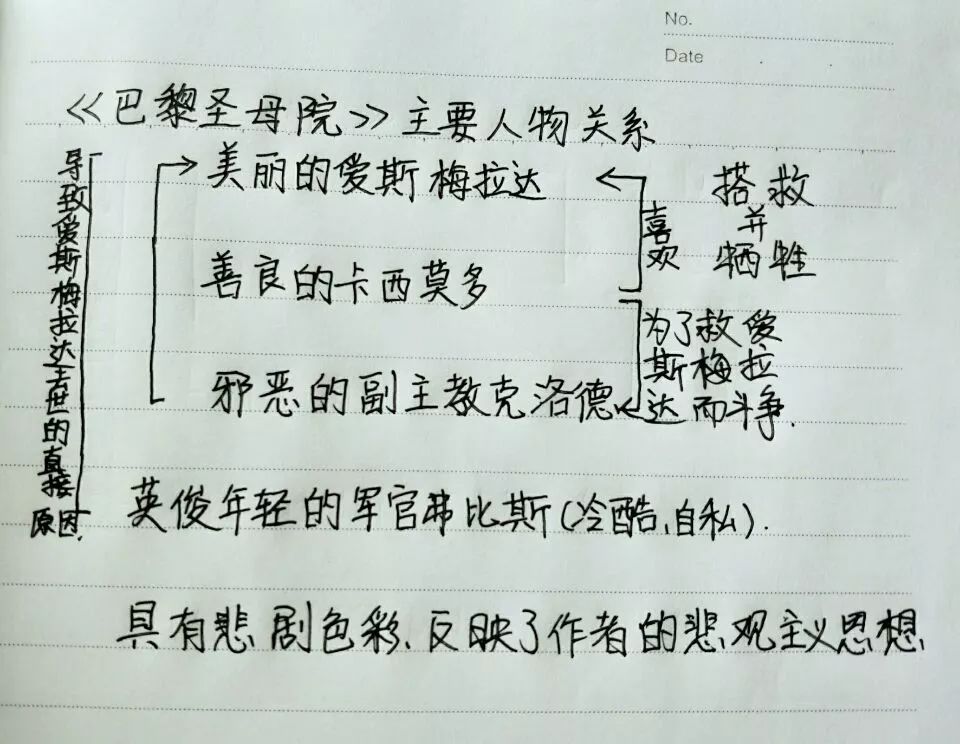 No.
Date
《巴黎圣母院》主要人物关系
导致爱斯梅拉达去世的直接原因
美丽的爱斯梅拉达
喜欢
搭救
并
牺牲
善良的卡西莫多
为了救爱
斯梅拉
达而斗争.
邪恶的副主教克洛德
英俊年轻的军官弗比斯(冷酷,自私).
具有悲剧色彩.反映了作者的悲观主义思想